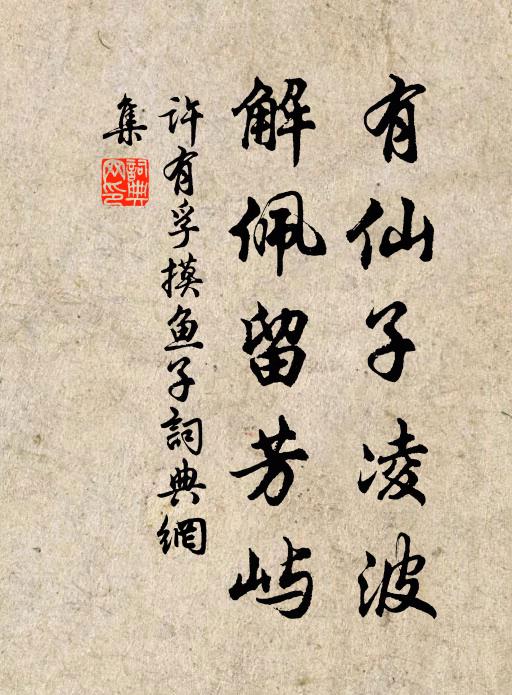 有仙子凌波
解佩留芳屿
许有孚摸鱼子詞典網
集
詞典网印